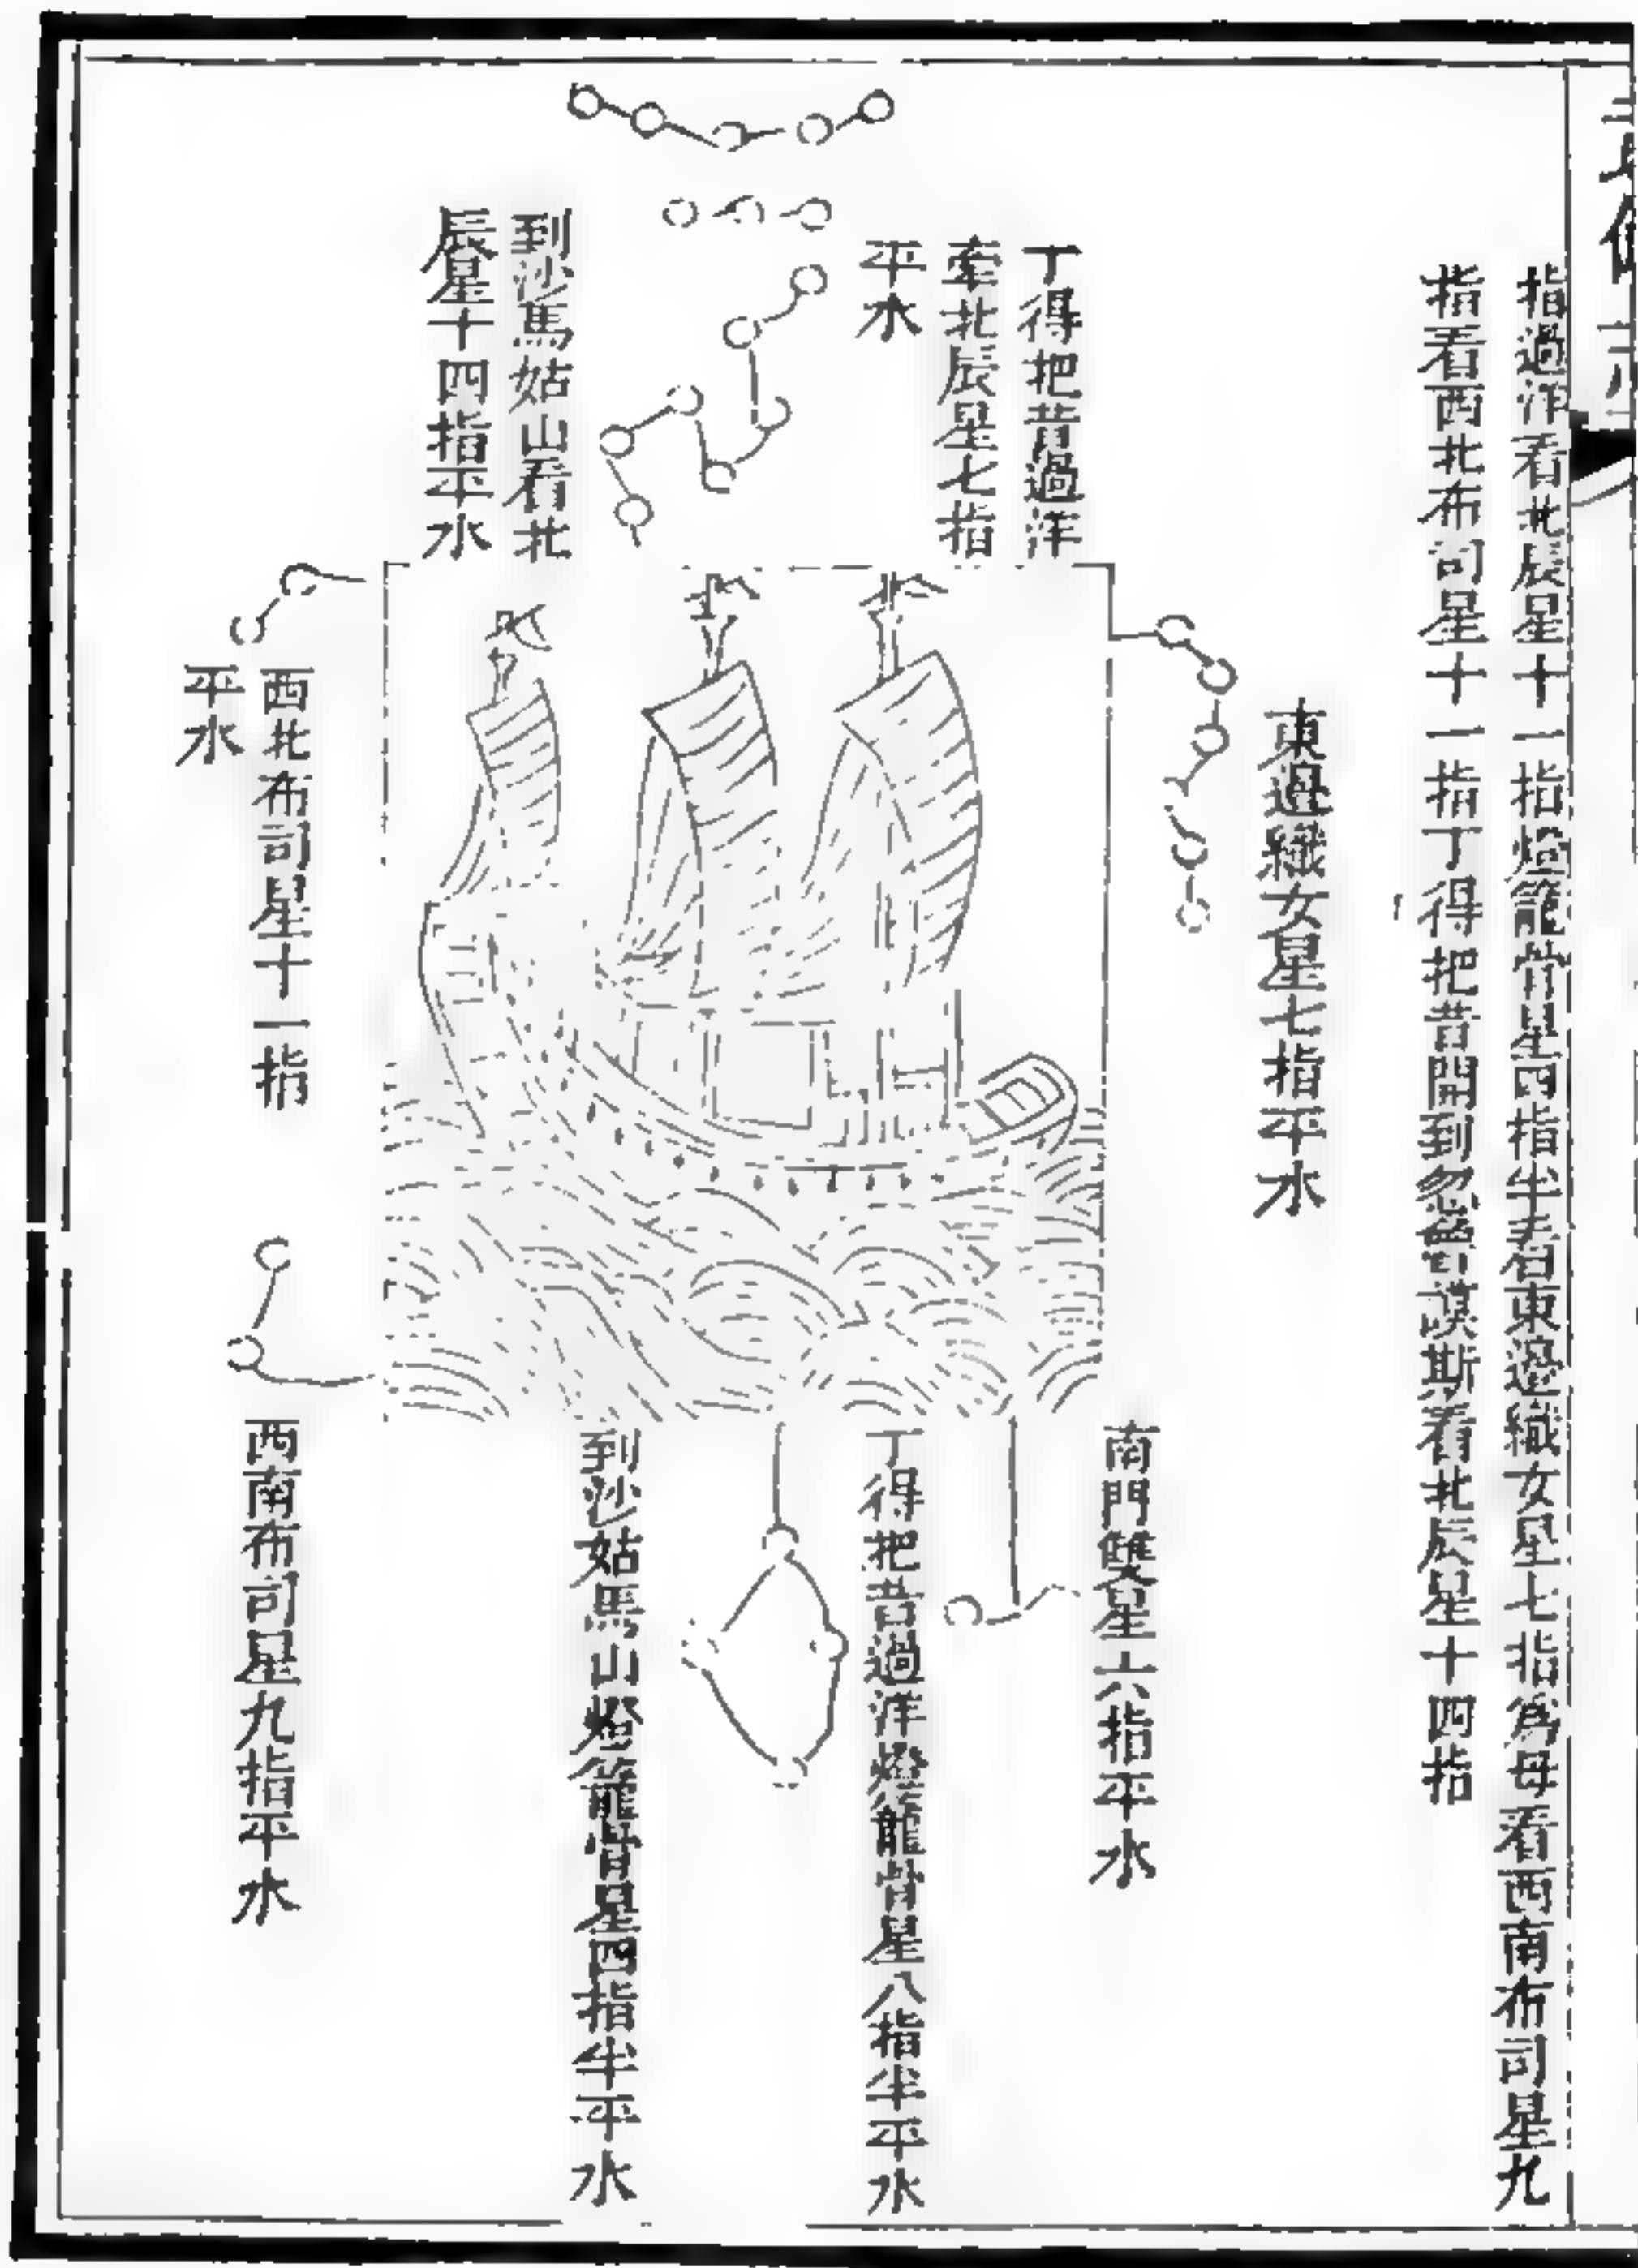 指過洋看北辰星十一指燈籠骨星四指半看東邊織女星七指為母看西南布司星九
指看西北布司星十一指丁得把昔開到忽魯謨斯看北辰星十四指
東邊織女星七指平水
丁得把昔過洋
牽北辰星七指
平水
到沙馬姑山看北
辰星十四指平水
西北布司星十一指
平水
南門雙星六指平水
丁得把昔過洋燈籠骨星八指半平水
到沙姑馬山燈籠骨星四指半平水
西南布司星九指平水